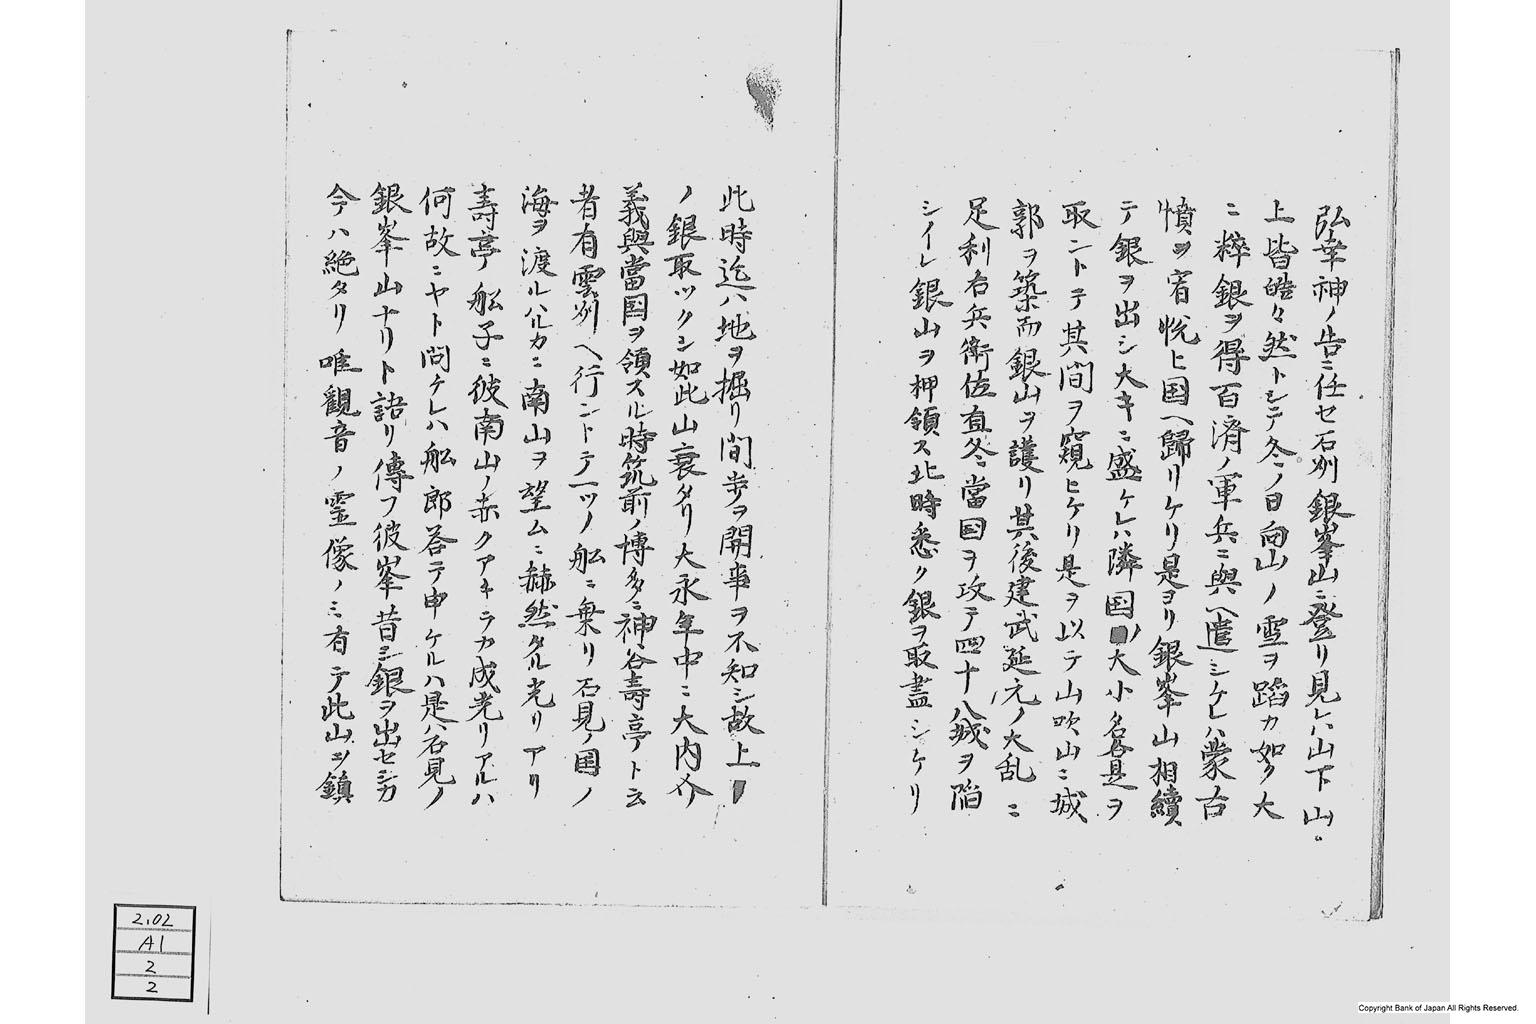 弘幸神ノ告ニ任セ石州銀峯山ニ登リ見レハ山下山
上皆皓々然トシテ冬ノ日向山ノ雪ヲ蹈カ如ク大
ニ粹銀ヲ得百濟ノ軍兵ニ與ヘ遣シケレハ蒙古
憤ヲ宥悦ヒ国ヘ歸リケリ是ヨリ銀峯山相續
テ銀ヲ出シ大キニ盛ケレハ隣国ノ大小名各是ヲ
取ントテ其間ヲ窺ヒケリ是ヲ以テ山吹山ニ城
郭ヲ築而銀山ヲ護リ其後建武延元ノ大乱ニ
足利右兵衛佐直冬當国ヲ攻テ四十八城ヲ陥
シイレ銀山ヲ押領ス此時悉ク銀ヲ取盡シケリ
此時迄ハ地ヲ掘リ間歩ヲ開事ヲ不知シ故上
ノ銀取ツクシ如此山衰タリ大永年中ニ大内介
義興當国ヲ領スル時筑前ノ博多ニ神谷壽亭ト云
者有雲州ヘ行ントテ一ツノ舩ニ乗リ石見ノ国ノ
海ヲ渡ルハルカニ南山ヲ望ムニ赫然タル光リアリ
壽亭舩子ニ彼南山ノ赤クアキラカ成光リアルハ
何故ニヤト問ケレハ舩郎答テ申ケルハ是ハ石見ノ
銀峯山ナリト語リ傳フ彼峯昔シ銀ヲ出セシカ
今ハ絶タリ唯觀音ノ霊像ノミ有テ此山ヲ鎮
2.02
A1
2
2
Copyright Bank of Japan All Rights Reserved.